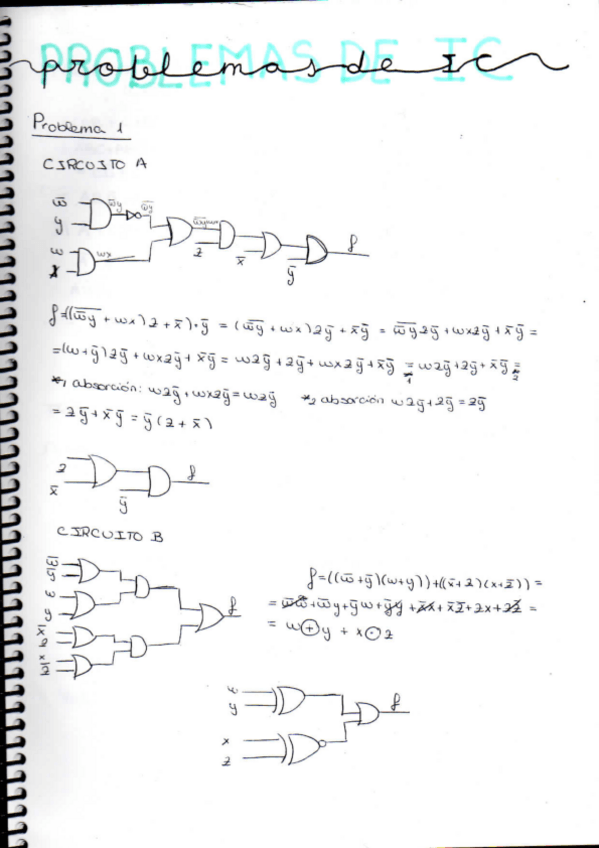 PROBLEMAS DE IC
problemas de IC
Problema 1
CIRCUITO A
w̅
y
w̅y
w̅y̅
w
x
wx
z
x̅
y̅
f
f=((w̅y̅ + wx)z + x̅)·y̅ = (w̅y̅ + wx)zy̅ + x̅y̅ = w̅y̅zy̅ + wxzy̅ + x̅y̅ =
=(w+y̅)zy̅ + wxzy̅ + x̅y̅ = wzy̅ + zy̅ + wxzy̅ + x̅y̅ =*1 wzy̅ + zy̅ + x̅y̅ =*2
*1 absorción: wzy̅ + wxzy̅ = wzy̅ *2 absorción wzy̅ + zy̅ = zy̅
= zy̅ + x̅y̅ = y̅(z + x̅)
z
x̅
y̅
f
CIRCUITO B
w̅
y̅
w
y
x̅
z
x
z̅
f
f=((w̅+y̅)(w+y))+((x̅+z)(x+z̅)) =
= w̅w+w̅y+y̅w+y̅y+x̅x+x̅z̅+zx+zz̅ =
= w⊕y + x⊙z
w
y
x
z
f